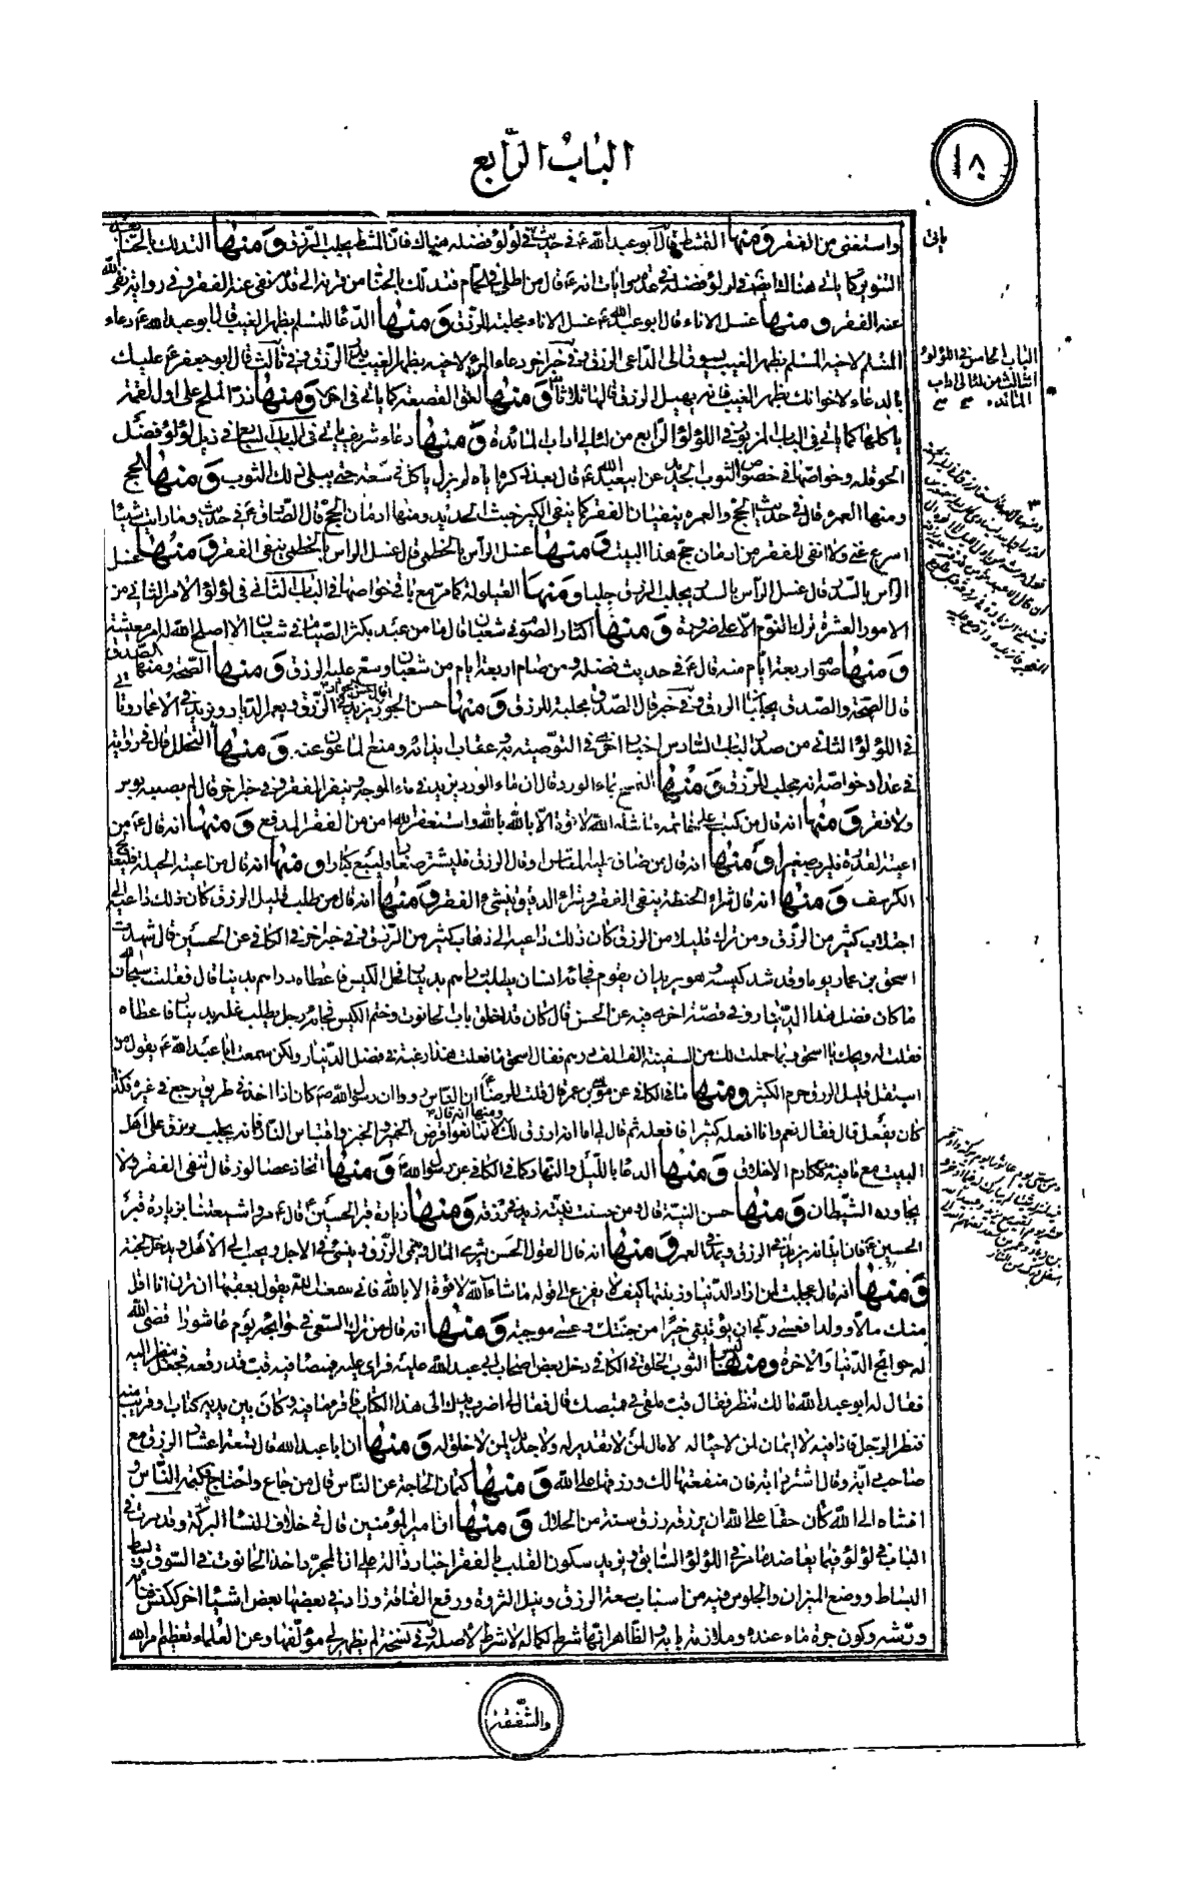 الباب الرابع
١٨٠
واستغنى من الفقر ومنها التمشط قال ابو عبد الله ع في حديث في لؤلؤ فضله هناك فان المشط يجلب الرزق ومنها التدلك بالحنا بعد
ياتى
التنوير كما ياتى هناك ايضا فى لؤلؤ فضله فى عدة روايات انه ع قال من اطلى فى الحمام فتدلك بالحنا من قرنه الى قدمه نفى عنه الفقر وفى رواية نفى الله
عنه الفقر ومنها غسل الاناء قال ابو عبد الله ع غسل الاناء مجلبة الرزق ومنها الدعا للمسلم بظهر الغيب قال ابو عبد الله ع دعاء
المسلم لاخيه المسلم بظهر الغيب يسوق الى الداعى الرزق وفى خبر اخر دعاء المرء لاخيه بظهر الغيب يدر الرزق وفى ثالث قال ابو جعفر ع عليك
الباب الخامس فى اللؤلؤ
الثالث من لئالى اداب
المائده
بالدعاء لاخوانك بظهر الغيب فانه يهيل الرزق قالها ثلاثا ومنها لعق القصعة كما ياتى فى اخر ومنها ذر الملح على اول لقمة
ياكلها كما ياتى فى الباب المزبور فى اللؤلؤ الرابع من لئالى اداب المائدة ومنها دعاء شريف ياتى فى الباب السابع فى ذيل لؤلؤ فضل
الحوقلة وخواصها فى خصوص الثوب الجديد عن ابى عبد الله ع قال بعد ذكره اياه لم يزل ياكل فى سعة حتى يبلى ذلك الثوب ومنها الحج
ومنها العمرة قال فى حديث الحج والعمرة ينفيان الفقر كما ينفى الكير خبث الحديد ومنها ادمان الحج قال الصادق ع فى حديث وما رايت شيئا
اسرع غنى ولا انفى للفقر من ادمان حج هذا البيت ومنها غسل الراس بالخطمى قال غسل الراس بالخطمى ينفى الفقر ومنها غسل
الراس بالسدر قال غسل الراس بالسدر يجلب الرزق جلبا ومنها القيلولة كما مر مع باقى خواصها فى الباب الثانى فى لؤلؤ الامر الثانى من
الامور العشرة ترك النوم الا على ضرورة ومنها اكثار الصوم فى شعبان قال ما من عبد يكثر الصيام فى شعبان الا اصلح الله له امر معيشته
ومنها صوم اربعة ايام منه قال ع فى حديث فضله ومن صام اربعة ايام من شعبان وسع عليه الرزق ومنها الصحة ومنها الصدق
قال الصحة والصدق يجلبان الرزق وفى خبر قال الصدق مجلبة للرزق ومنها حسن الجوار يزيد فى الرزق ويعمر الديار ويزيد فى الاعمار وياتى
فى اللؤلؤ الثانى من صدر الباب السادس اخبار اخرى فى التوصية به وعقاب ايذائه ومنع الماعون عنه ومنها التخلل قال فى رواية
فى عداد خواصه انه مجلب للرزق ومنها المسح بماء الورد قال ان ماء الورد يزيد فى ماء الوجه وينفى الفقر وفى خبر اخر قال لم يصبه بؤس
ولا فقر ومنها انه قال من كتب على خاتمه ما شاء الله لا قوة الا بالله واستغفر الله امن من الفقر المدقع ومنها انه قال ع من
اعيته القدرة فليرب صغيرا ومنها انه قال من ضاق عليه المعاش او قال الرزق فليشتر صغارا وليبع كبارا ومنها انه قال من اعيته الحيلة فليعالج
الكرسف ومنها انه قال شراء الحنطة ينفى الفقر وشراء الدقيق ينشىء الفقر ومنها انه قال من طلب قليل الرزق كان ذلك داعيه الى
اجتلاب كثير من الرزق ومن ترك قليلا من الرزق كان ذلك داعيه الى ذهاب كثير من الرزق وفى خبر اخر فى الكافى عن الحسين قال شهدت
اسحق بن عمار يوما وقد شد كيسه وهو يريد ان يقوم فجائه انسان يطلب دراهم بدينار فحل الكيس فاعطاه دراهم بدينار قال فقلت سبحان الله
ما كان فضل هذا الدينار وفى قصة اخرى فيه عن الحسن قال كان قد اغلق باب الحانوت وختم الكيس فجائه رجل يطلب غلة بدينار فاعطاه
فقلت له ويحك يا اسحق ربما حملت لك من السفينة الف الف درهم فقال اسحق ما فعلت هذا رغبة فى فضل الدينار ولكن سمعت ابا عبد الله ع يقول من
استقل قليل الرزق حرم الكثير ومنها ما فى الكافى عن موسى بن عمر قال قلت للرضا ع ان الناس رووا ان رسول الله ص كان اذا اخذ فى طريق رجع فى غيره فكذا
كان يفعل قال فقال نعم وانا افعله كثيرا فافعله ثم قال لى اما انه ارزق لك ومنها انه قال لا تمانعوا قرض الخمير والخبز واقتباس النار فانه يجلب الرزق على اهل
البيت مع ما فيه من مكارم الاخلاق ومنها الدعا بالليل والنهار كما فى الكافى عن رسول الله ومنها اتخاذ عصا لوز قال تنفى الفقر ولا
يجاوره الشيطان ومنها حسن النية قال ومن حسنت نيته زيد فى رزقه ومنها زيارة قبر الحسين ع قال ع مروا شيعتنا بزيارة قبر
الحسين ع فان اتيانه يزيد فى الرزق ويمد فى العمر ومنها انه قال القول الحسن يثرى المال وينمى الرزق وينسئ فى الاجل ويحبب الى الاهل ويدخل الجنة
ومنها انه قال عجبت لمن اراد الدنيا وزينتها كيف لا يفزع الى قوله ما شاء الله لا قوة الا بالله فانى سمعت الله يقول بعقبها ان ترن انا اقل
منك مالا وولدا فعسى ربى ان يؤتينى خيرا من جنتك وعسى موجبة ومنها انه قال من ترك السعى فى حوائجه يوم عاشورا قضى الله
له حوائج الدنيا والاخرة ومنها لبس الثوب الخلق فى الكافى دخل بعض اصحاب ابى عبد الله عليه فراى عليه قميصا فيه قب قد رقعه فجعل ينظر اليه
فقال له ابو عبد الله مالك تنظر فقال قب ملقى فى قميصك قال فقال لى اضرب يدك الى هذا الكتاب فاقرء ما فيه وكان بين يديه كتاب او قريب منه
فنظر الرجل فاذا فيه لا ايمان لمن لا حياء له ولا مال لمن لا تقدير له ولا جديد لمن لا خلق له ومنها ان ابا عبد الله قال تسعة اعشار الرزق مع
صاحب الدابة وقال اشتر دابة فان منفعتها لك ورزقها على الله ومنها كتمان الحاجة عن الناس قال من جاع واحتاج فكتمه الناس و
افشاه الى الله كان حقا على الله ان يرزقه رزق سنة من الحلال ومنها ان امير المؤمنين قال فى خلاف النساء البركة وقد مرت فى
الباب فى لؤلؤ فيما يعاضد ما مر فى اللؤلؤ السابق ويزيد سكون القلب فى الفقر اخبار دالة على ان المجرد اخذ الحانوت فى السوق وبسط
البساط ووضع الميزان والجلوس فيه من اسباب سعة الرزق ونيل الثروة ورفع الفاقة وزاد فى بعضها بعض اشياء اخر ككنس فنائه
ورشه وكون جرة ماء عنده وملازمة بابه والظاهر انها شرط كماله لا شرط لاصله وفى نسخة لم يظهر لى مؤلفها وعن العلماء تعظيم امر الله
والشفقة